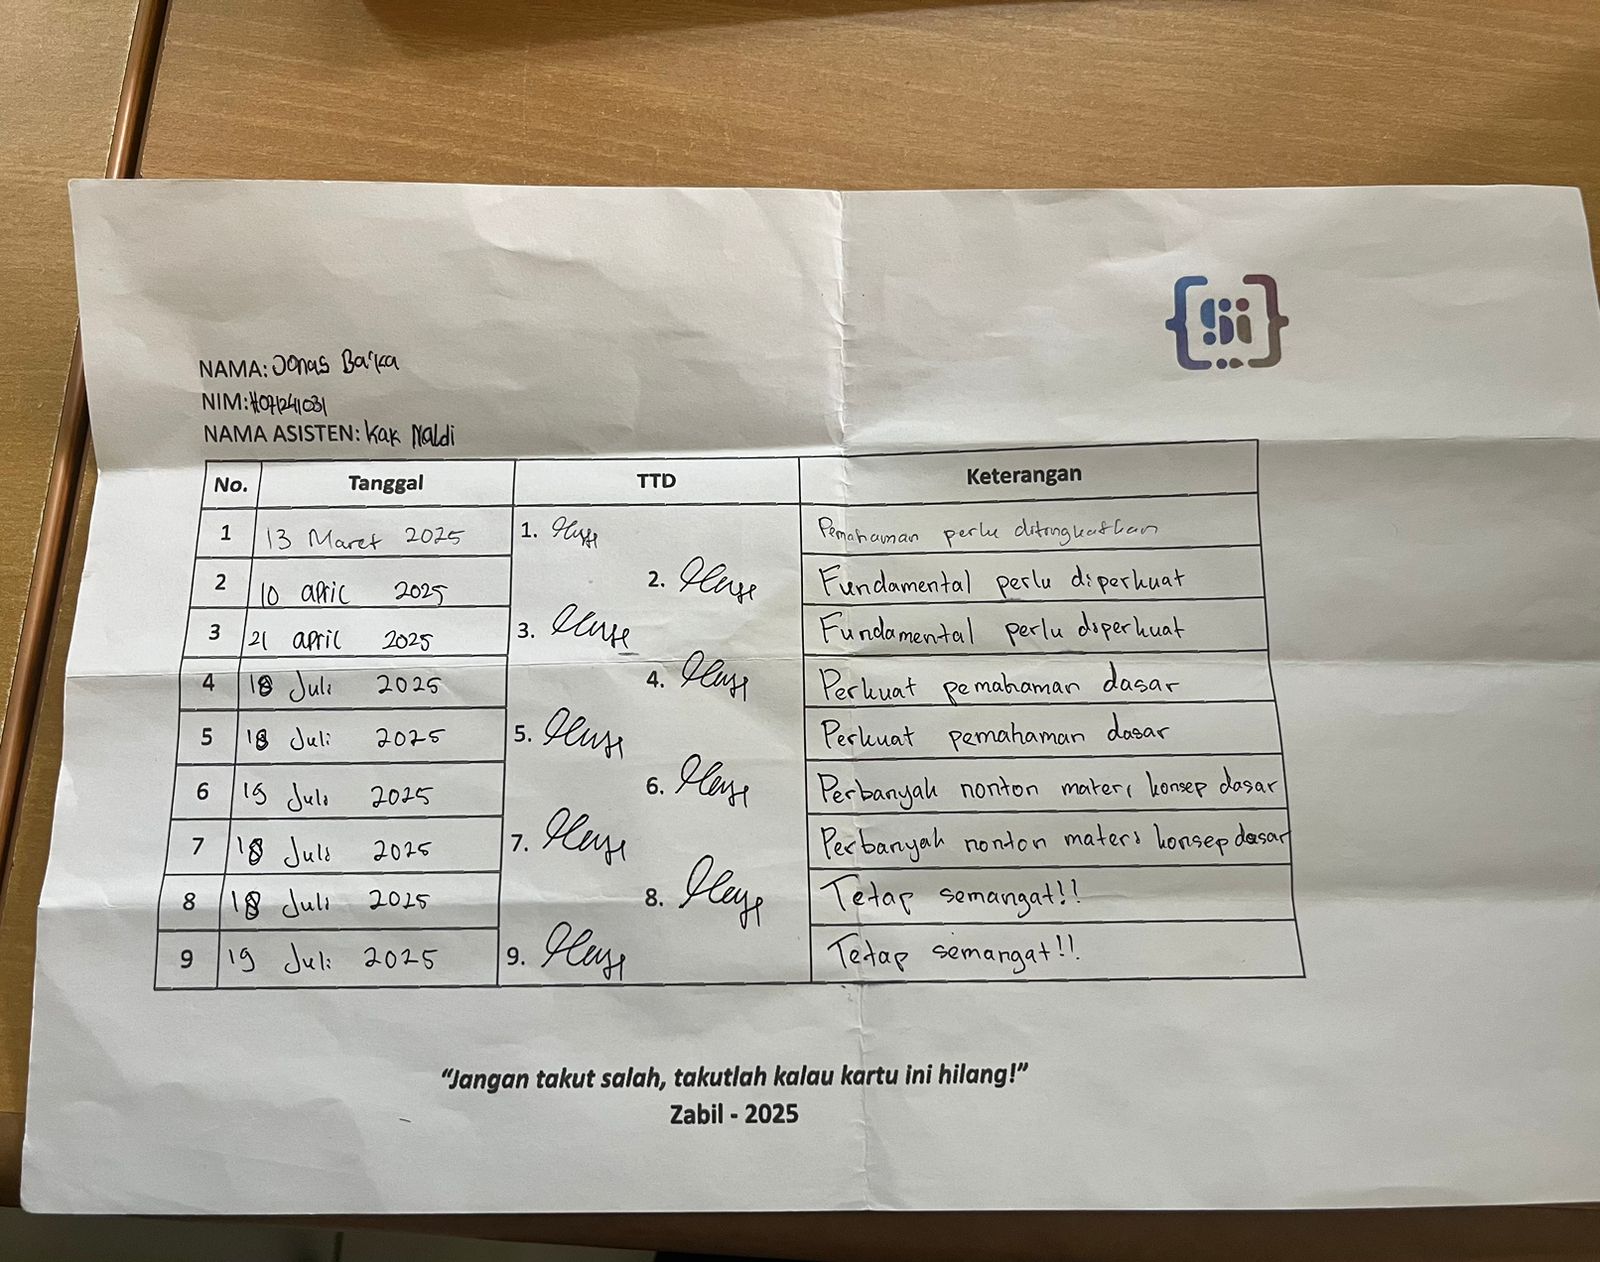 NAMA: Jonas Ba'ka
NIM: H071241031
NAMA ASISTEN: Kak Naldi
No. Tanggal TTD Keterangan
1 13 Maret 2025 1. Pemahaman perlu ditingkatkan
2 10 april 2025 2. Fundamental perlu diperkuat
3 21 april 2025 3. Fundamental perlu diperkuat
4 18 Juli 2025 4. Perkuat pemahaman dasar
5 18 Juli 2025 5. Perkuat pemahaman dasar
6 19 Juli 2025 6. Perbanyak nonton materi konsep dasar
7 18 Juli 2025 7. Perbanyak nonton materi konsep dasar
8 18 Juli 2025 8. Tetap semangat!!
9 19 Juli 2025 9. Tetap semangat!!
“Jangan takut salah, takutlah kalau kartu ini hilang!”
Zabil - 2025